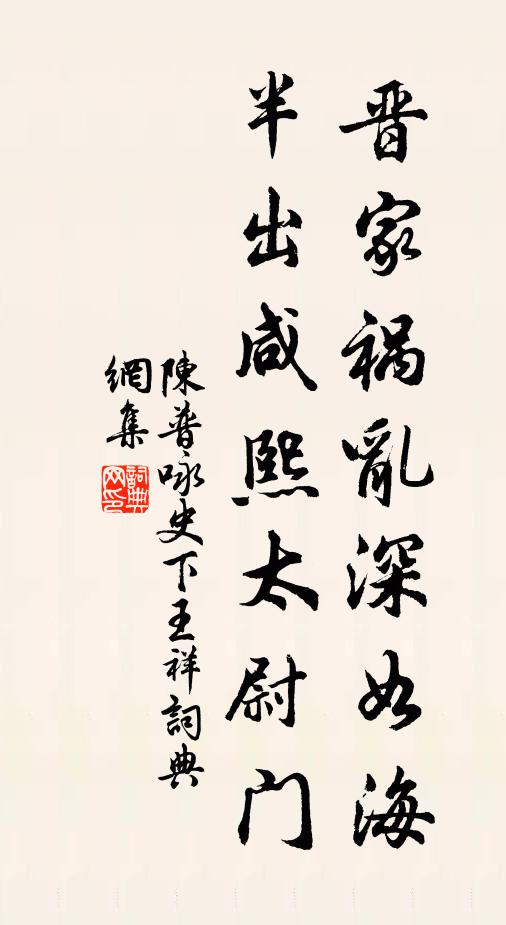 晋家祸亂深如海
半出咸熙太尉门
陳普咏史下王祥詞典
網集
詞典网印